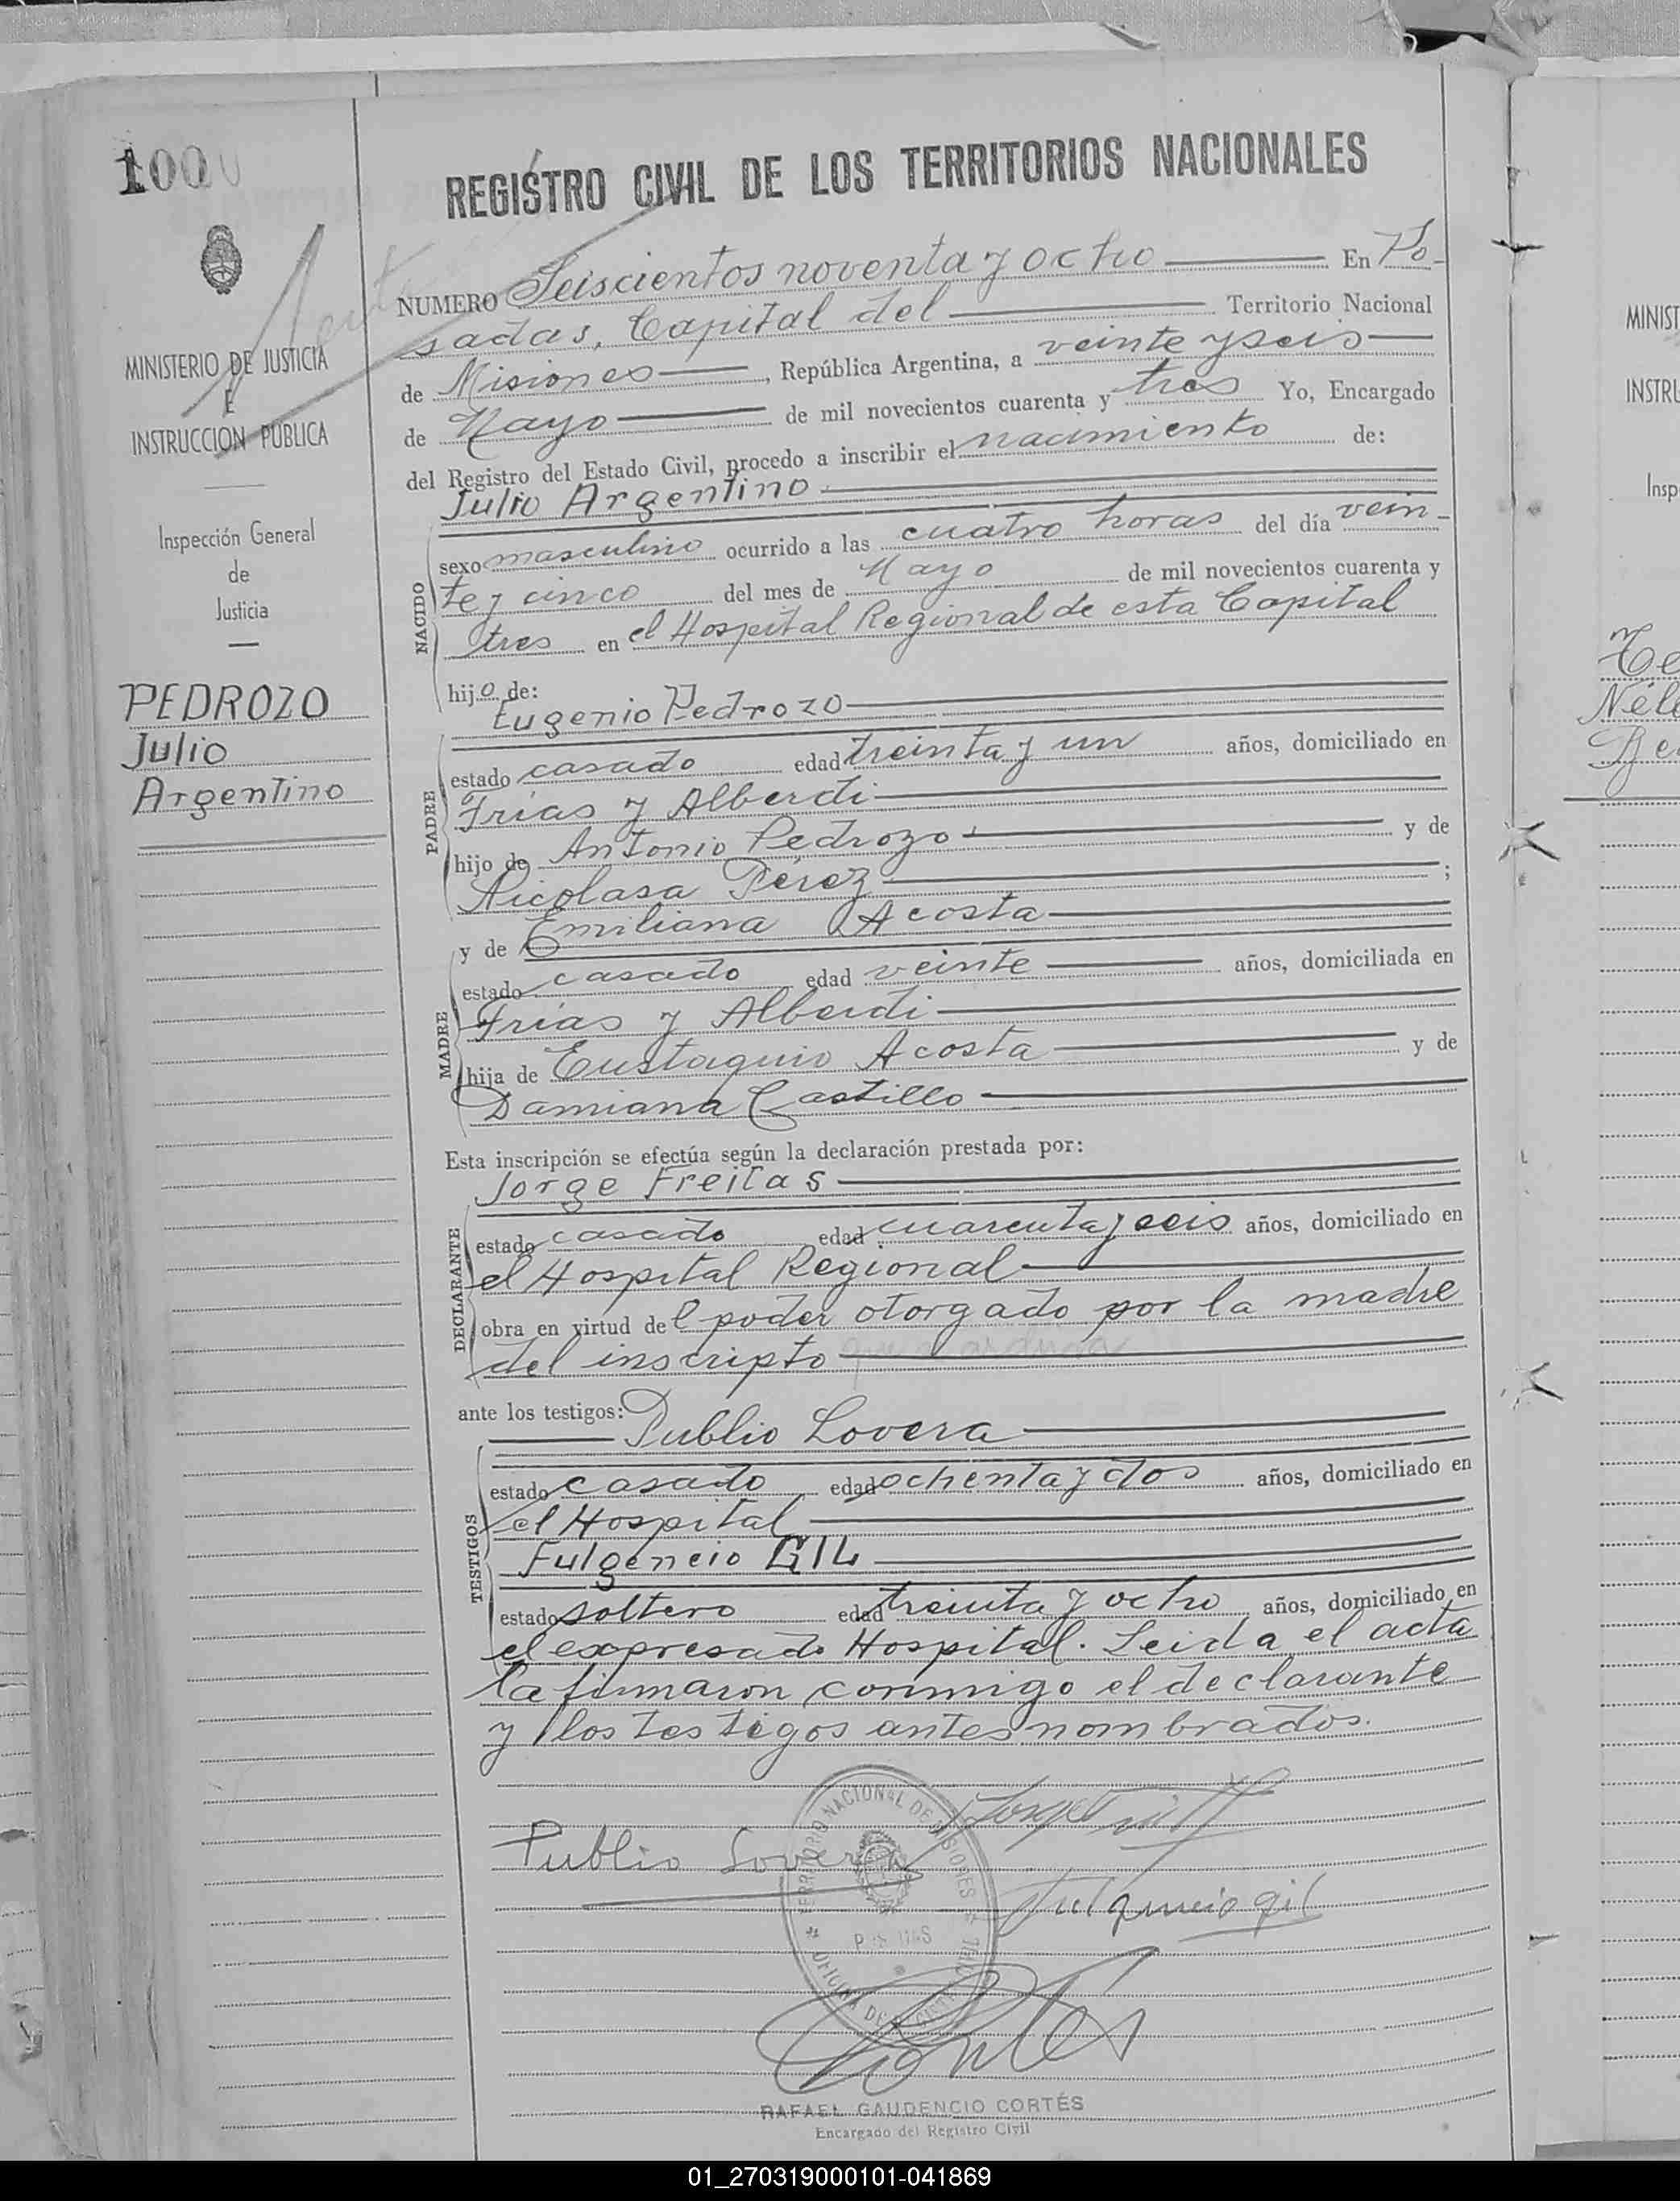 100
REGISTRO CIVIL DE LOS TERRITORIOS NACIONALES
MINISTERIO DE JUSTICIA
E
INSTRUCCION PÚBLICA
Inspección General
de
Justicia
PEDROZO
Julio
Argentino
NUMERO Seiscientos noventa y ocho En Po-
sadas, Capital del Territorio Nacional
de Misiones, República Argentina, a veinte y seis
de Mayo de mil novecientos cuarenta y tres Yo, Encargado
del Registro del Estado Civil, procedo a inscribir el nacimiento de:
Julio Argentino
NACIDO
sexo masculino ocurrido a las cuatro horas del día vein-
te y cinco del mes de Mayo de mil novecientos cuarenta y
tres en el Hospital Regional de esta Capital
hijo de:
Eugenio Pedrozo
PADRE
estado casado edad treinta y un años, domiciliado en
Frias y Alberdi
hijo de Antonio Pedrozo y de
Nicolasa Pérez ;
y de Emiliana Acosta
MADRE
estado casado edad veinte años, domiciliada en
Frias y Alberdi
hija de Eustaquio Acosta y de
Damiana Castillo
Esta inscripción se efectúa según la declaración prestada por:
Jorge Freitas
DECLARANTE
estado casado edad cuarenta y seis años, domiciliado en
el Hospital Regional
obra en virtud del poder otorgado por la madre
del inscripto
ante los testigos:
Publio Lovera
TESTIGOS
estado casado edad ochenta y dos años, domiciliado en
el Hospital
Fulgencio GIL
estado soltero edad treinta y ocho años, domiciliado en
el expresado Hospital. Leida el acta
la firmaron conmigo el declarante
y los testigos antes nombrados.
TERRITORIO NACIONAL DE MISIONES
POSADAS
Publio Lovera
Fulgencio gil
Cortés
RAFAEL GAUDENCIO CORTÉS
Encargado del Registro Civil
MINIST
INSTRU
Insp
Néli
01_270319000101-041869